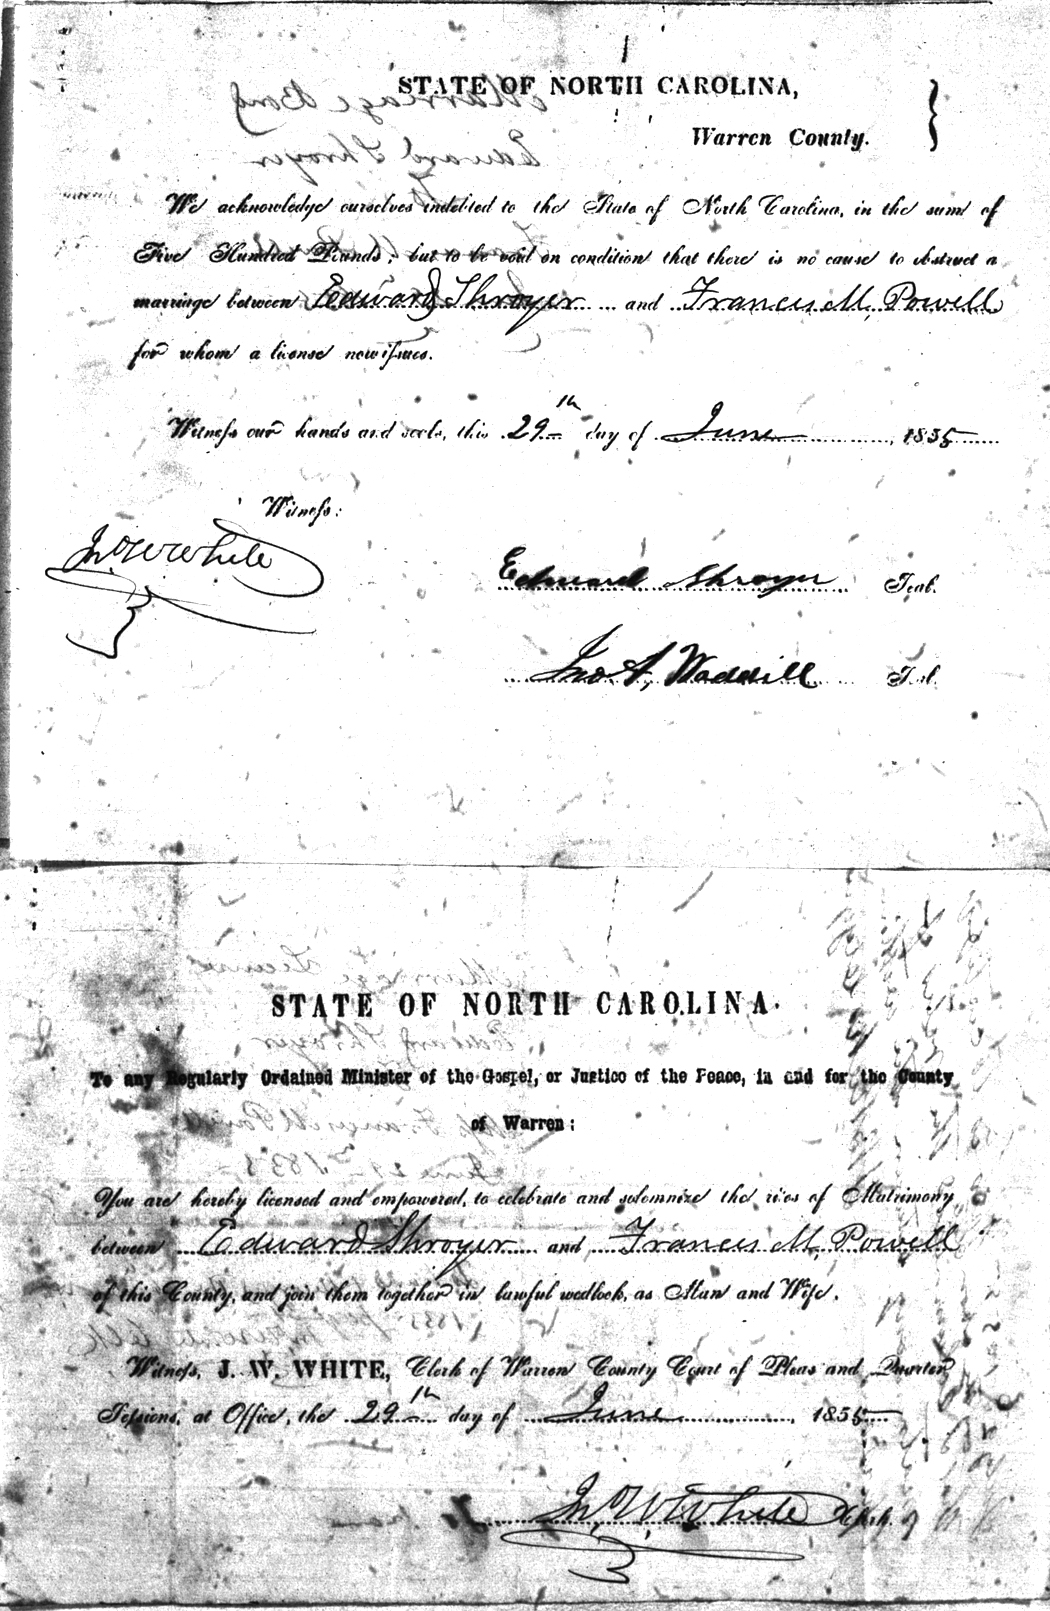 STATE OF NORTH CAROLINA,
Warren County.
We acknowledge ourselves indebted to the State of North Carolina, in the sum of
Five Hundred Pounds; but to be void on condition that there is no cause to obstruct a
marriage between Edward Shroyer and Francis M. Powell
for whom a license now issues.
Witness our hands and seals, this 29th day of June, 1855
Witness:
Jno W White
Edward Shroyer Seal.
Jno A, Waddill Seal
Marriage License
Edward Shroyer
STATE OF NORTH CAROLINA.
To any Regularly Ordained Minister of the Gospel, or Justice of the Peace, in and for the County
of Warren:
You are hereby licensed and empowered, to celebrate and solemnize the rites of Matrimony
between Edward Shroyer and Francis M, Powell
of this County, and join them together in lawful wedlock, as Man and Wife.
Witness, J. W. WHITE, Clerk of Warren County Court of Pleas and Quarter
Sessions, at Office, the 29th day of June, 1855
Jno W White Clerk